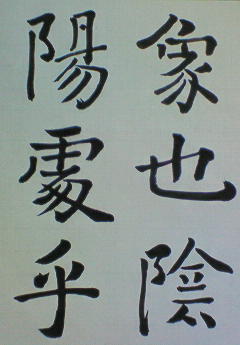 象也陰
陽處乎